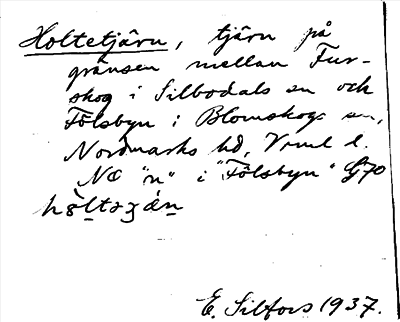 Holtetjärn, tjärn på
gränsen mellan Fur-
skog i Silbodals sn och
Fölsbyn i Blomskogs sn,
Nordmarks hd, Vrml l.
NÖ "n" i "Fölsbyn" G70
E. Silfors 1937.